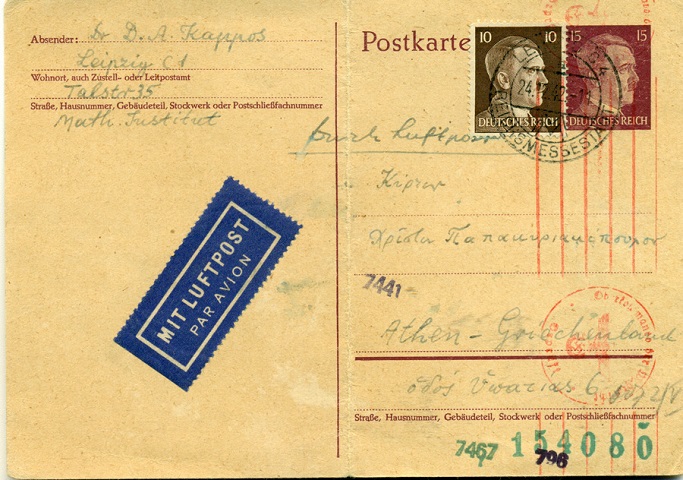 Absender: Dr D. A. Kappos
Leipzig C1
Wohnort, auch Zustell- oder Leitpostamt
Talstr 35
Straße, Hausnummer, Gebäudeteil, Stockwerk oder Postschließfachnummer
Math. Institut
Postkarte
10 10
DEUTSCHES REICH
15 15
DEUTSCHES REICH
REICHSMESSESTADT
durch Luftpost
Κύριον
Χρίστο
MIT LUFTPOST
PAR AVION
7441
Athen - Griechenland
ὁδός Ὑπατίας 6
Straße, Hausnummer, Gebäudeteil, Stockwerk oder Postschließfachnummer
7467 154080
796